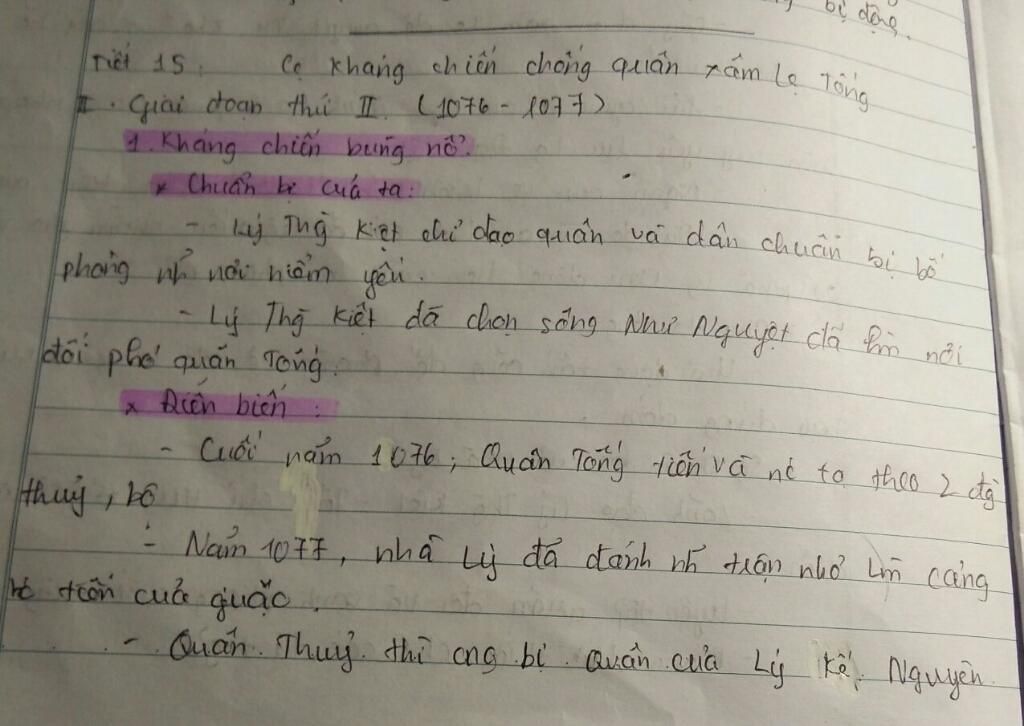 bị động.
Tiết 15: Cc kháng chiến chống quân xâm lc Tống
II. Giai đoạn thứ II. (1076 - 1077)
1. Kháng chiến bùng nổ.
* Chuẩn bị của ta:
- Lý Thg Kiệt chỉ đạo quân và dân chuẩn bị bố
phòng nh nơi hiểm yếu.
- Lý Thg Kiệt đã chọn sông Như Nguyệt để làm nơi
đối phó quân Tống.
* Diễn biến:
- Cuối năm 1076, Quân Tống tiến và nc ta theo 2 đg
thuỷ, bộ
- Năm 1077, nhà Lý đã đánh nh trận nhỏ làm cảng
bc tiến của giặc.
- Quân Thuỷ thì cng bị quân của Lý Kế Nguyên